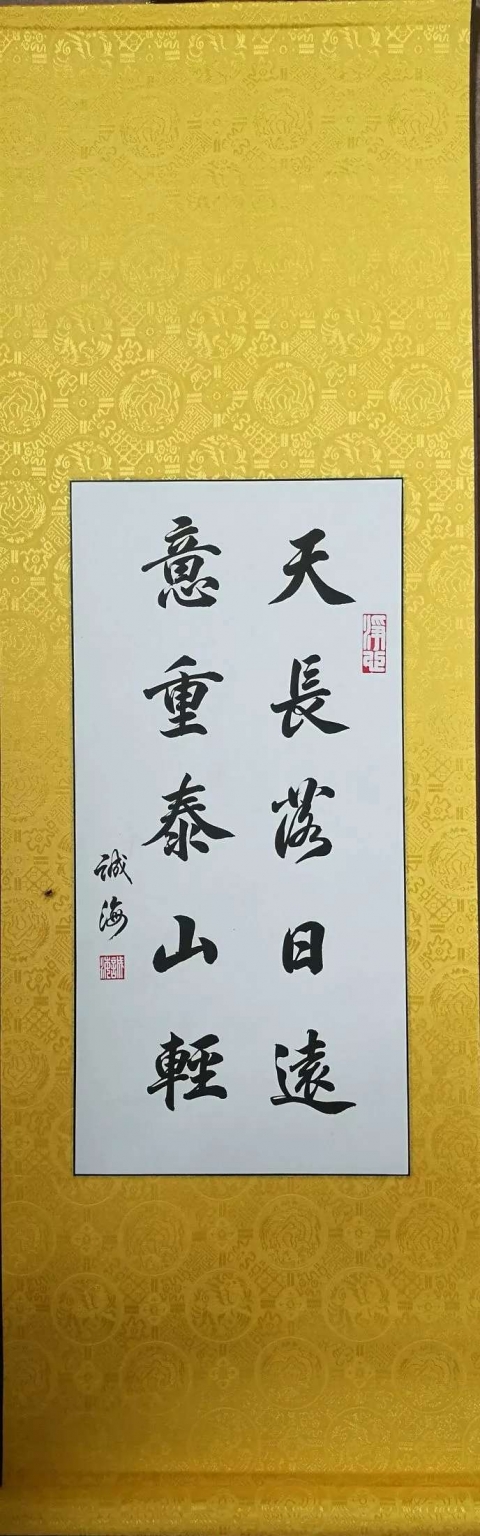 天長落日遠
意重泰山輕
誠海